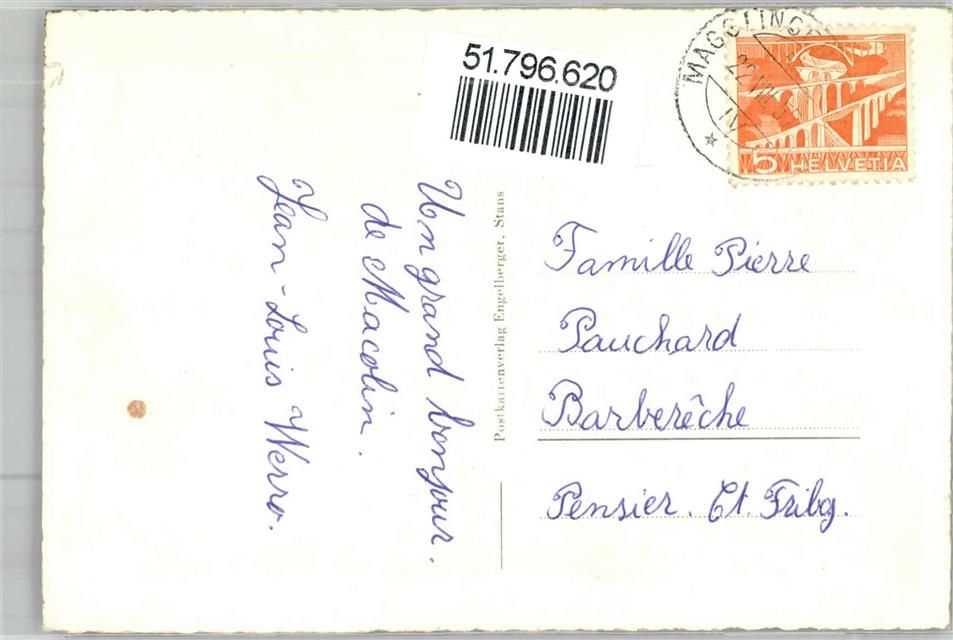 51.796.620
MAGGLINGEN
22.VIII.
5 HELVETIA
Un grand bonjour.
de Macolin.
Jean-Louis Werro.
Postkartenverlag Engelberger, Stans
Famille Pierre
Pauchard
Barberêche
Pensier. Ct. Fribg.